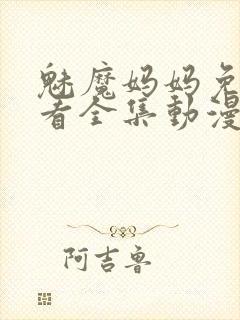 魅魔妈妈免
看全集動漫
阿吉鲁